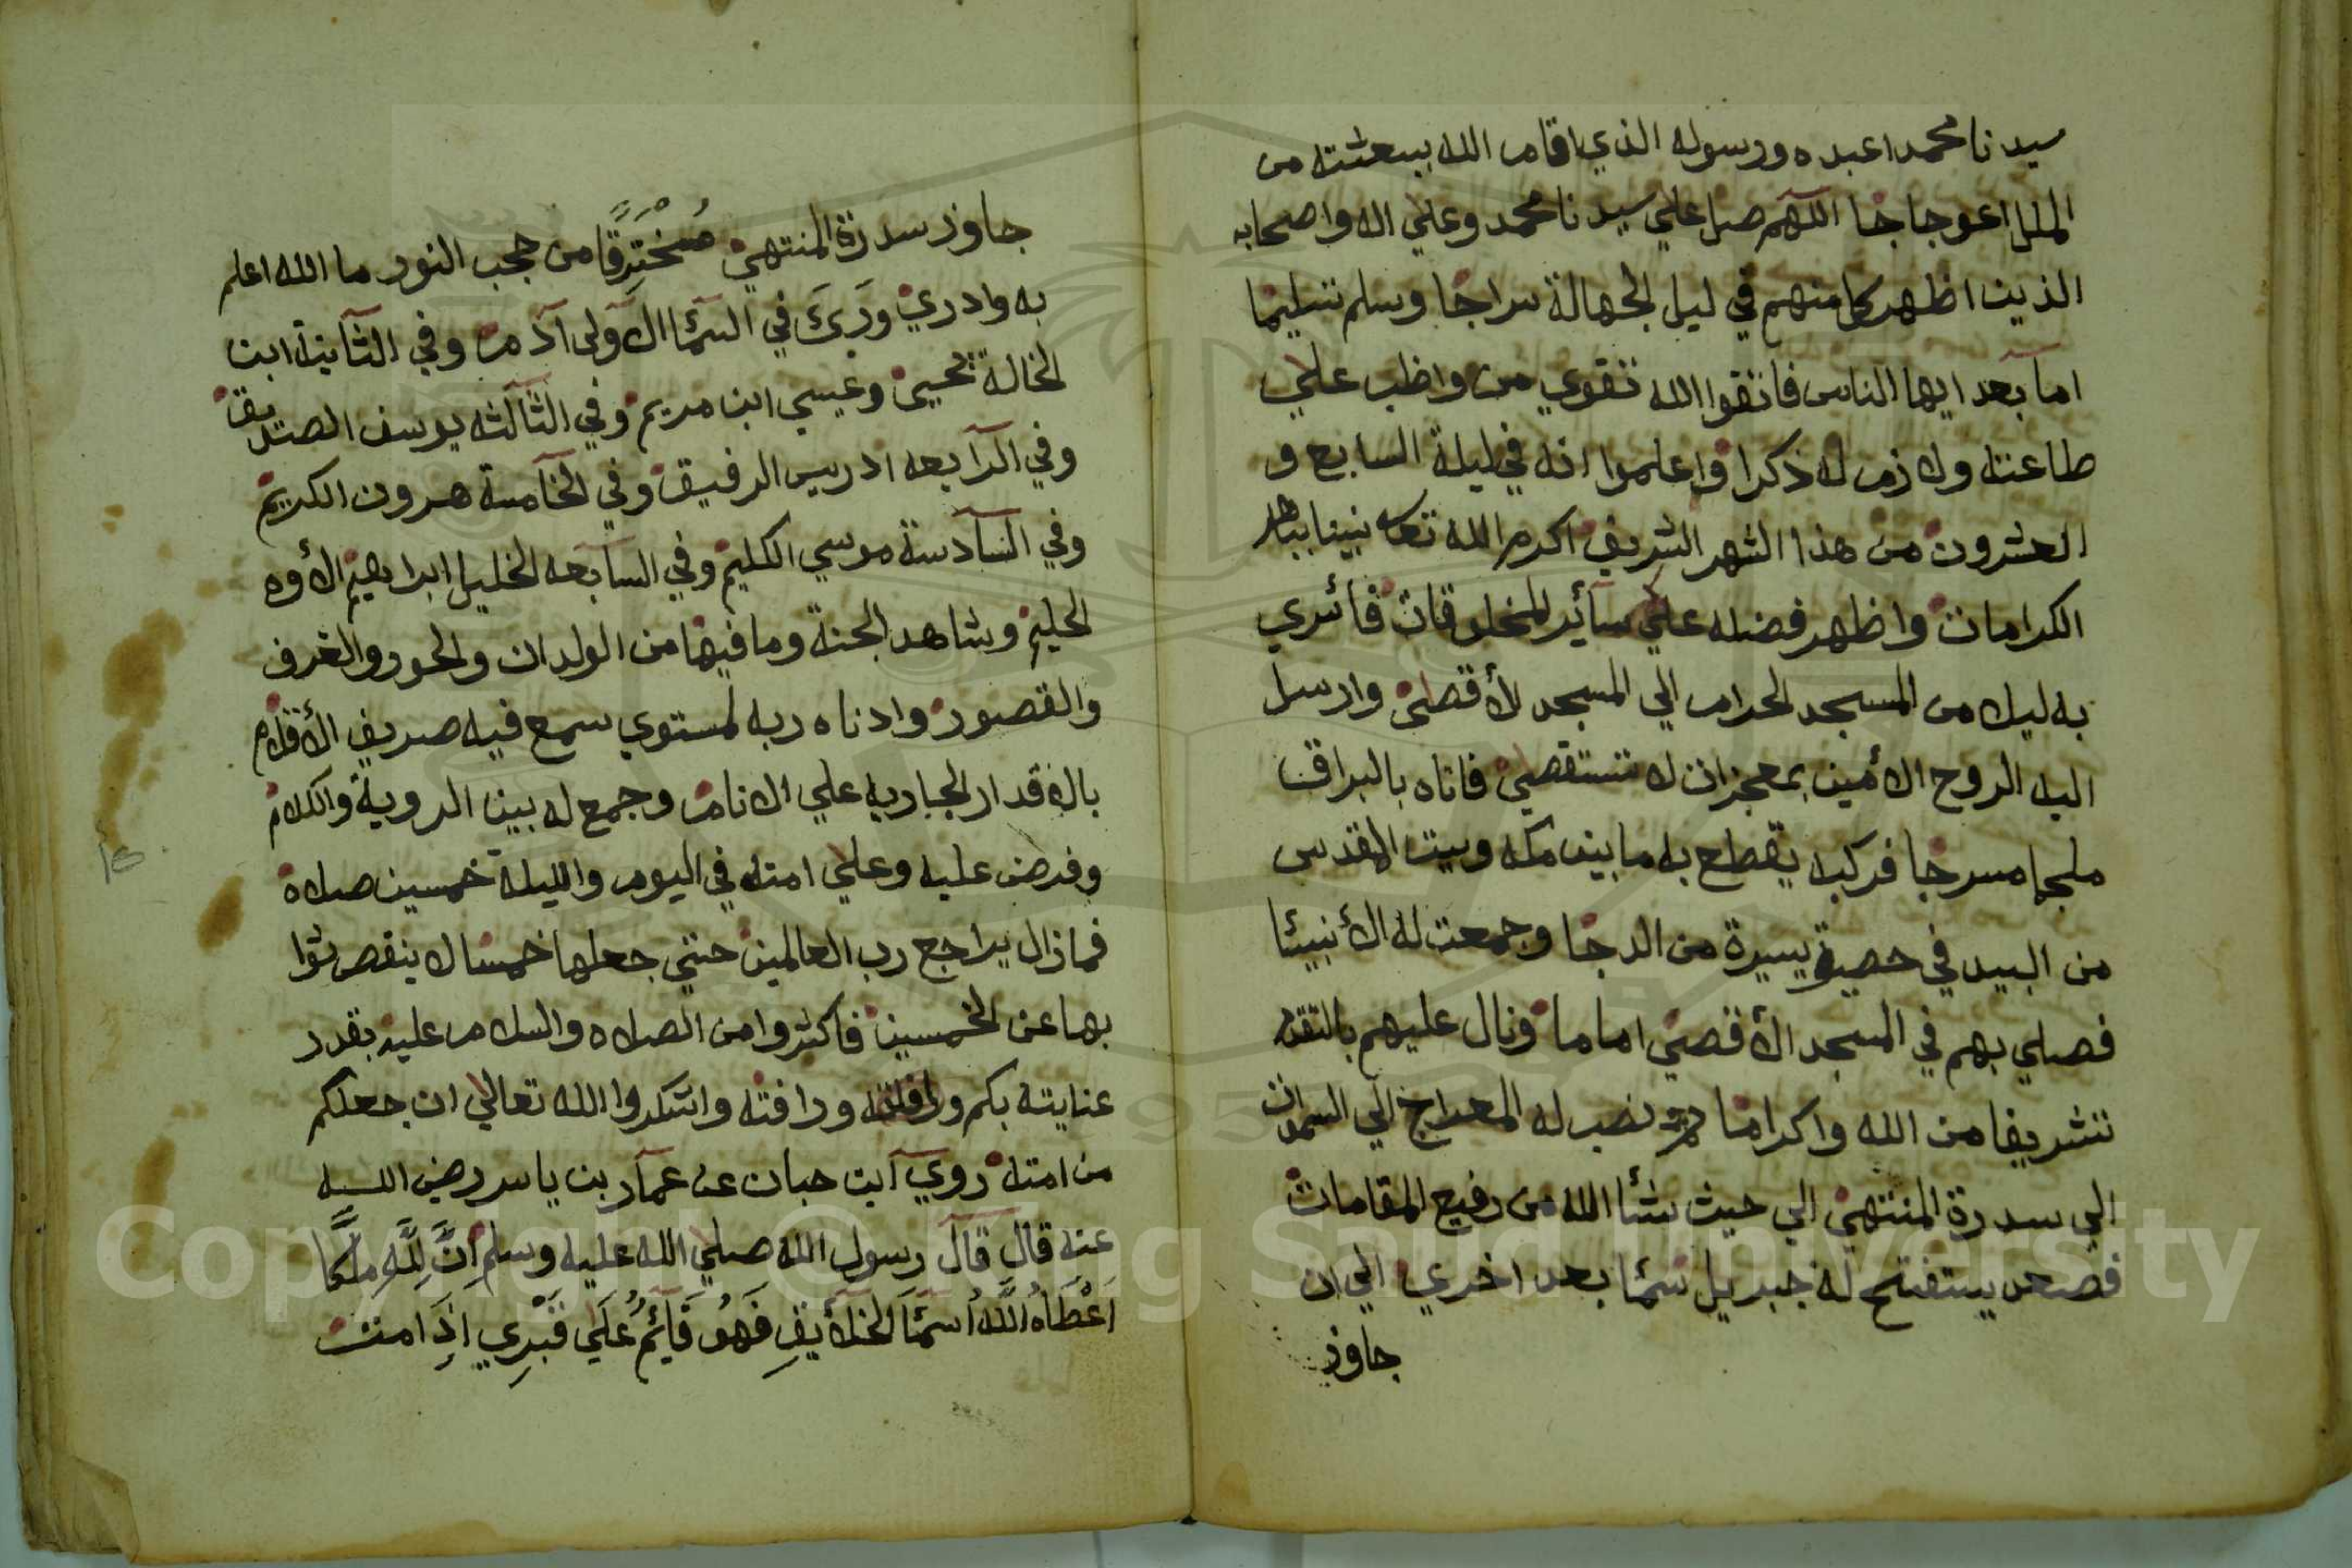 سيدنا محمدا عبده ورسوله الذي اقام الله ببعثته من
الملل اعوجاجا اللهم صل علي سيدنا محمد وعلي اله واصحابه
الذين اظهر كل منهم في ليل الجهالة سراجا وسلم تسليما
اما بعد ايها الناس فاتقوا الله تقوي من واظب علي
طاعته ولازم له ذكرا واعلموا انه في ليلة السابع و
العشرون من هذا الشهر الشريف اكرم الله تعالى نبينا بباهر
الكرامات واظهر فضله علي سآئر المخلوقات فأسري
به ليلا من المسجد الحرام الي المسجد لأقصى وارسل
اليه الروح الأمين بمعجزات لا تستقصي فاتاه بالبراق
ملجما مسرجا فركبه يقطع به ما بين مكه وبيت المقدس
من البيد في حصة يسيرة من الدجا وجمعت له الأنبيئا
فصلي بهم في المسجد الأقصي اماما ونال عليهم بالتقدم
تشريفا من الله واكراما ثم نصب له المعراج الي السموات
الي سدرة المنتهي الي حيث شئا الله من رفيع المقامات
فصعد يستفتح له جبريل سمئا بعد اخري الي ان
جاوز
جاوز سدرة المنتهي مُخْتَرِقًا من حجب النور ما الله اعلم
به وادري وَرَئَ في السمئا الآولى آدم وفي الثآنية ابن
الخالة يحيي وعيسي ابن مريم وفي الثآلثه يوسف الصديق
وفي الرآبعه ادريس الرفيق وفي الخآمسة هرون الكريم
وفي السآدسة موسي الكليم وفي السآبعه الخليل ابراهيم الأوه
الحليم وشاهد الجنة وما فيها من الولدان والحور والغرف
والقصور وادناه ربه لمستوي سمع فيه صريف الأقلام
بالاقدار الجباريه علي الانام وجمع له بين الروية والكلام
وفرض عليه وعلي امته في اليوم والليلة خمسين صلاة
فما زال يراجع رب العالمين حتي جعلها خمسا لا ينقص ثوا
بها عن الخمسين فاكثروا من الصلاه والسلام عليه بقدر
عنايته بكم ورافته واشكروا الله تعالي ان جعلكم
من امته روي آبن حبان عن عمآر بن ياسر رضي الله
عنه قال قال رسول الله صلي الله عليه وسلم اِنَّ لِلَّهِ مَلَكًا
اَعْطَاهُ اللَّهُ اَسْمَئَا الخَلَآيِقِ فَهُوَ قَآئِمٌ عَلَي قَبْرِي اِذَا مت
Copyright © King Saud University